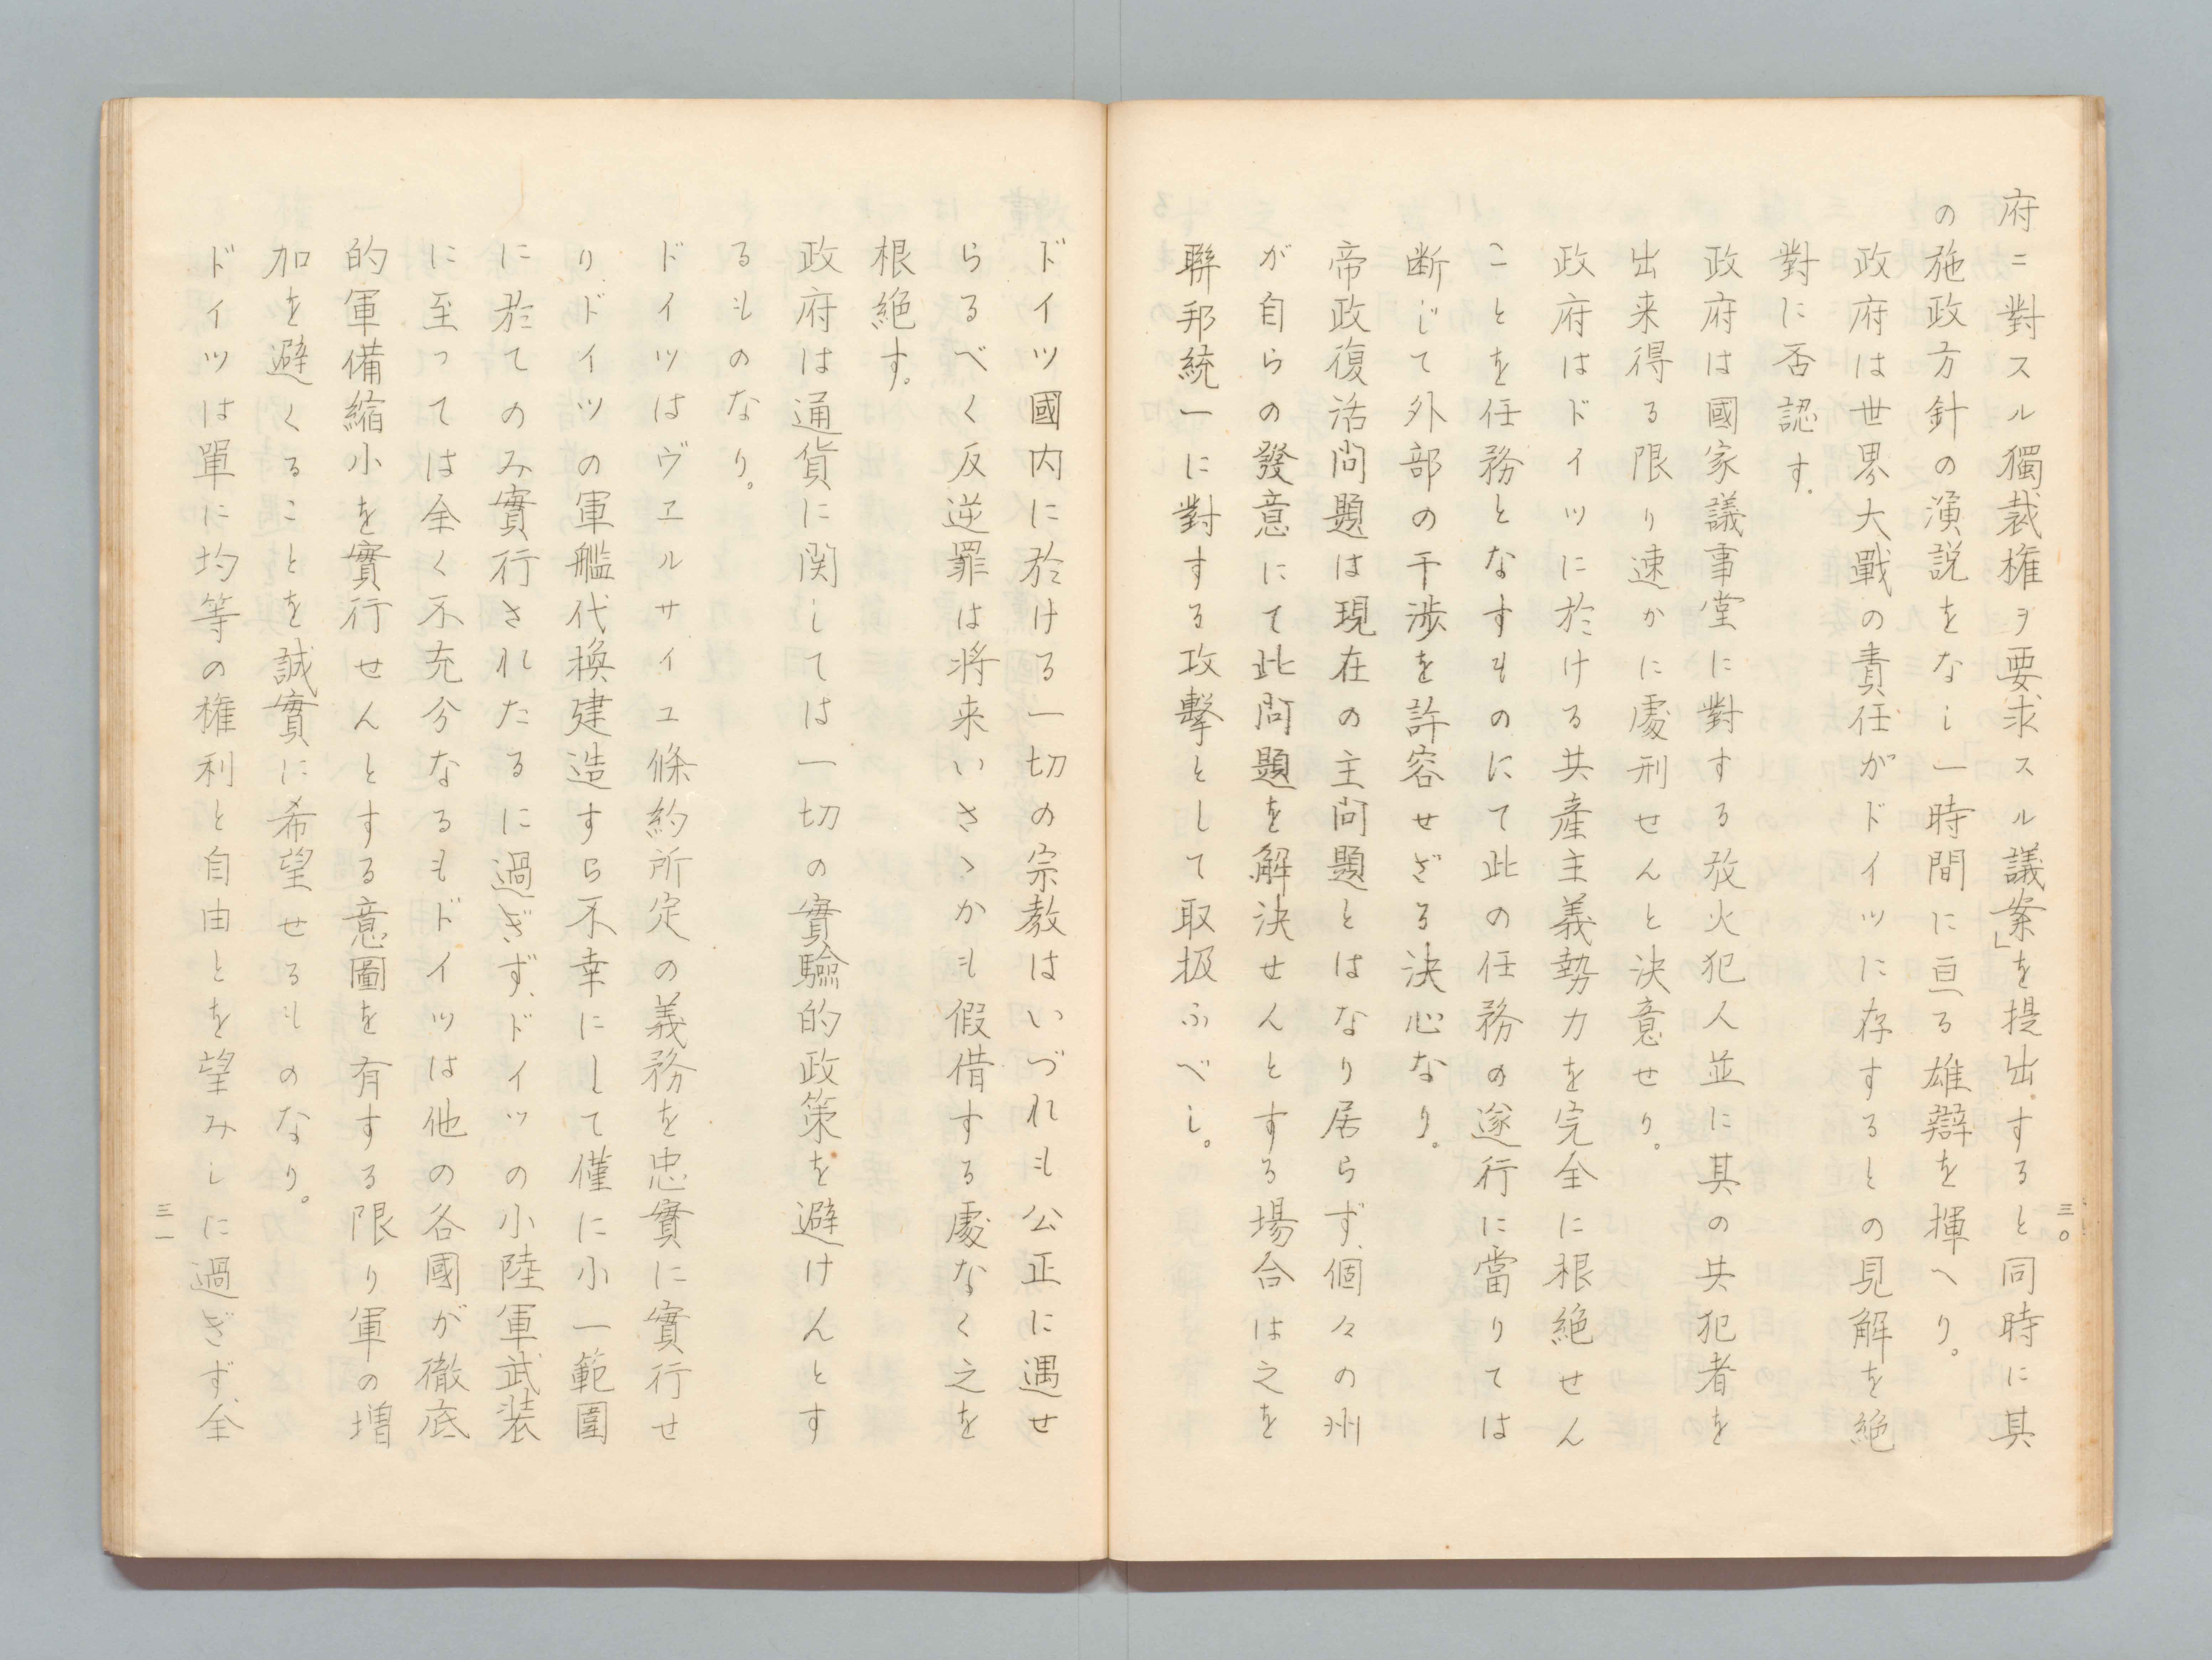 府ニ對スル獨裁権ヲ要求スル議案」を提出すると同時に其
の施政方針の演説をなし一時間に亘る雄辯を揮へり。
政府は世界大戰の責任がドイツに存するとの見解を絶
對に否認す。
政府は國家議事堂に對する放火犯人並に其の共犯者を
出来得る限り速かに處刑せんと決意せり。
政府はドイツに於ける共産主義勢力を完全に根絶せん
ことを任務となすものにて此の任務の遂行に當りては
断じて外部の干渉を許容せざる決心なり。
帝政復活問題は現在の主問題とはなり居らず、個々の州
が自らの發意にて此問題を解決せんとする場合は之を
聯邦統一に對する攻擊として取扱ふべし。
三〇
ドイツ國内に於ける一切の宗教はいづれも公正に遇せ
らるべく反逆罪は将来いさゝかも假借する處なく之を
根絶す。
政府は通貨に関しては一切の實驗的政策を避けんとす
るものなり。
ドイツはヴエルサイユ條約所定の義務を忠實に實行せ
り、ドイツの軍艦代換建造すら不幸にして僅に小一範圍
に於てのみ實行されたるに過ぎず、ドイツの小陸軍武装
に至っては全く不充分なるもドイツは他の各國が徹底
的軍備縮小を實行せんとする意圖を有する限り軍の増
加を避くることを誠實に希望せるものなり。
ドイツは單に均等の権利と自由とを望みしに過ぎず、全
三一